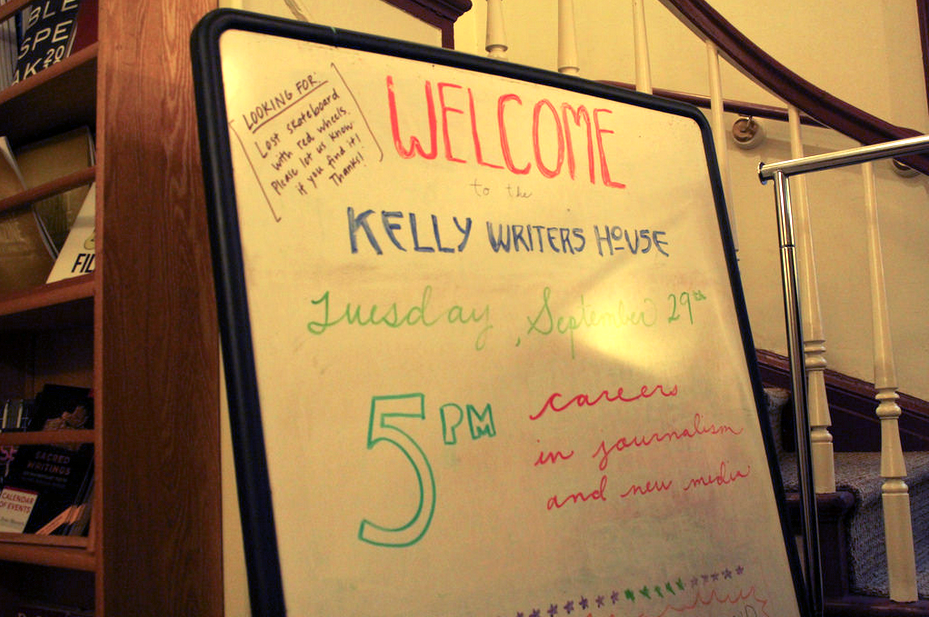 BLE
SPE
AK20
LOOKING FOR:
Lost skateboard
with red wheels.
Please let us know
if you find it!
Thanks!
WELCOME
to the
KELLY WRITERS HOUSE
Tuesday, September 29th
5PM
careers
in journalism
and new media
FIL
SACRED
WRITINGS
CALENDAR
OF EVENTS